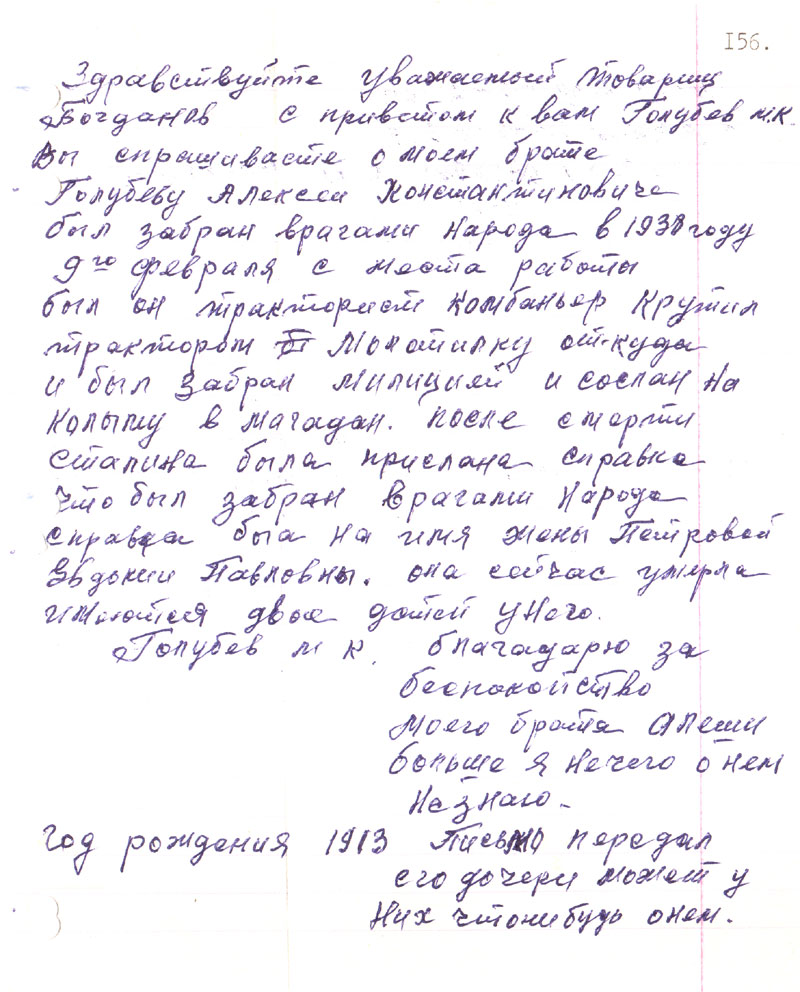 156.
Здравствуйте уважаемый товарищ
Богданов с приветом к вам Голубев м.к.
Вы спрашиваете о моем брате
Голубеву Алексеи Константиновиче
был забран врагами народа в 1938 году
9го февраля с места работы
был он тракторист комбаньер крутил
трактором молотилку от-куда
и был забран милицией и сослан на
колыму в магадан. после смерти
сталина была прислана справка
что был забран врагами народа
справка быа на имя жены Петровой
Евдокии Павловны. она сейчас умерла
имеются двое детей у него.
Голубев м к. благадарю за
беспокойство
моего брата Алеши
больше я нечего о нем
незнаю.
год рождения 1913 Письмо передал
его дочери может у
них чтонибудь онем.